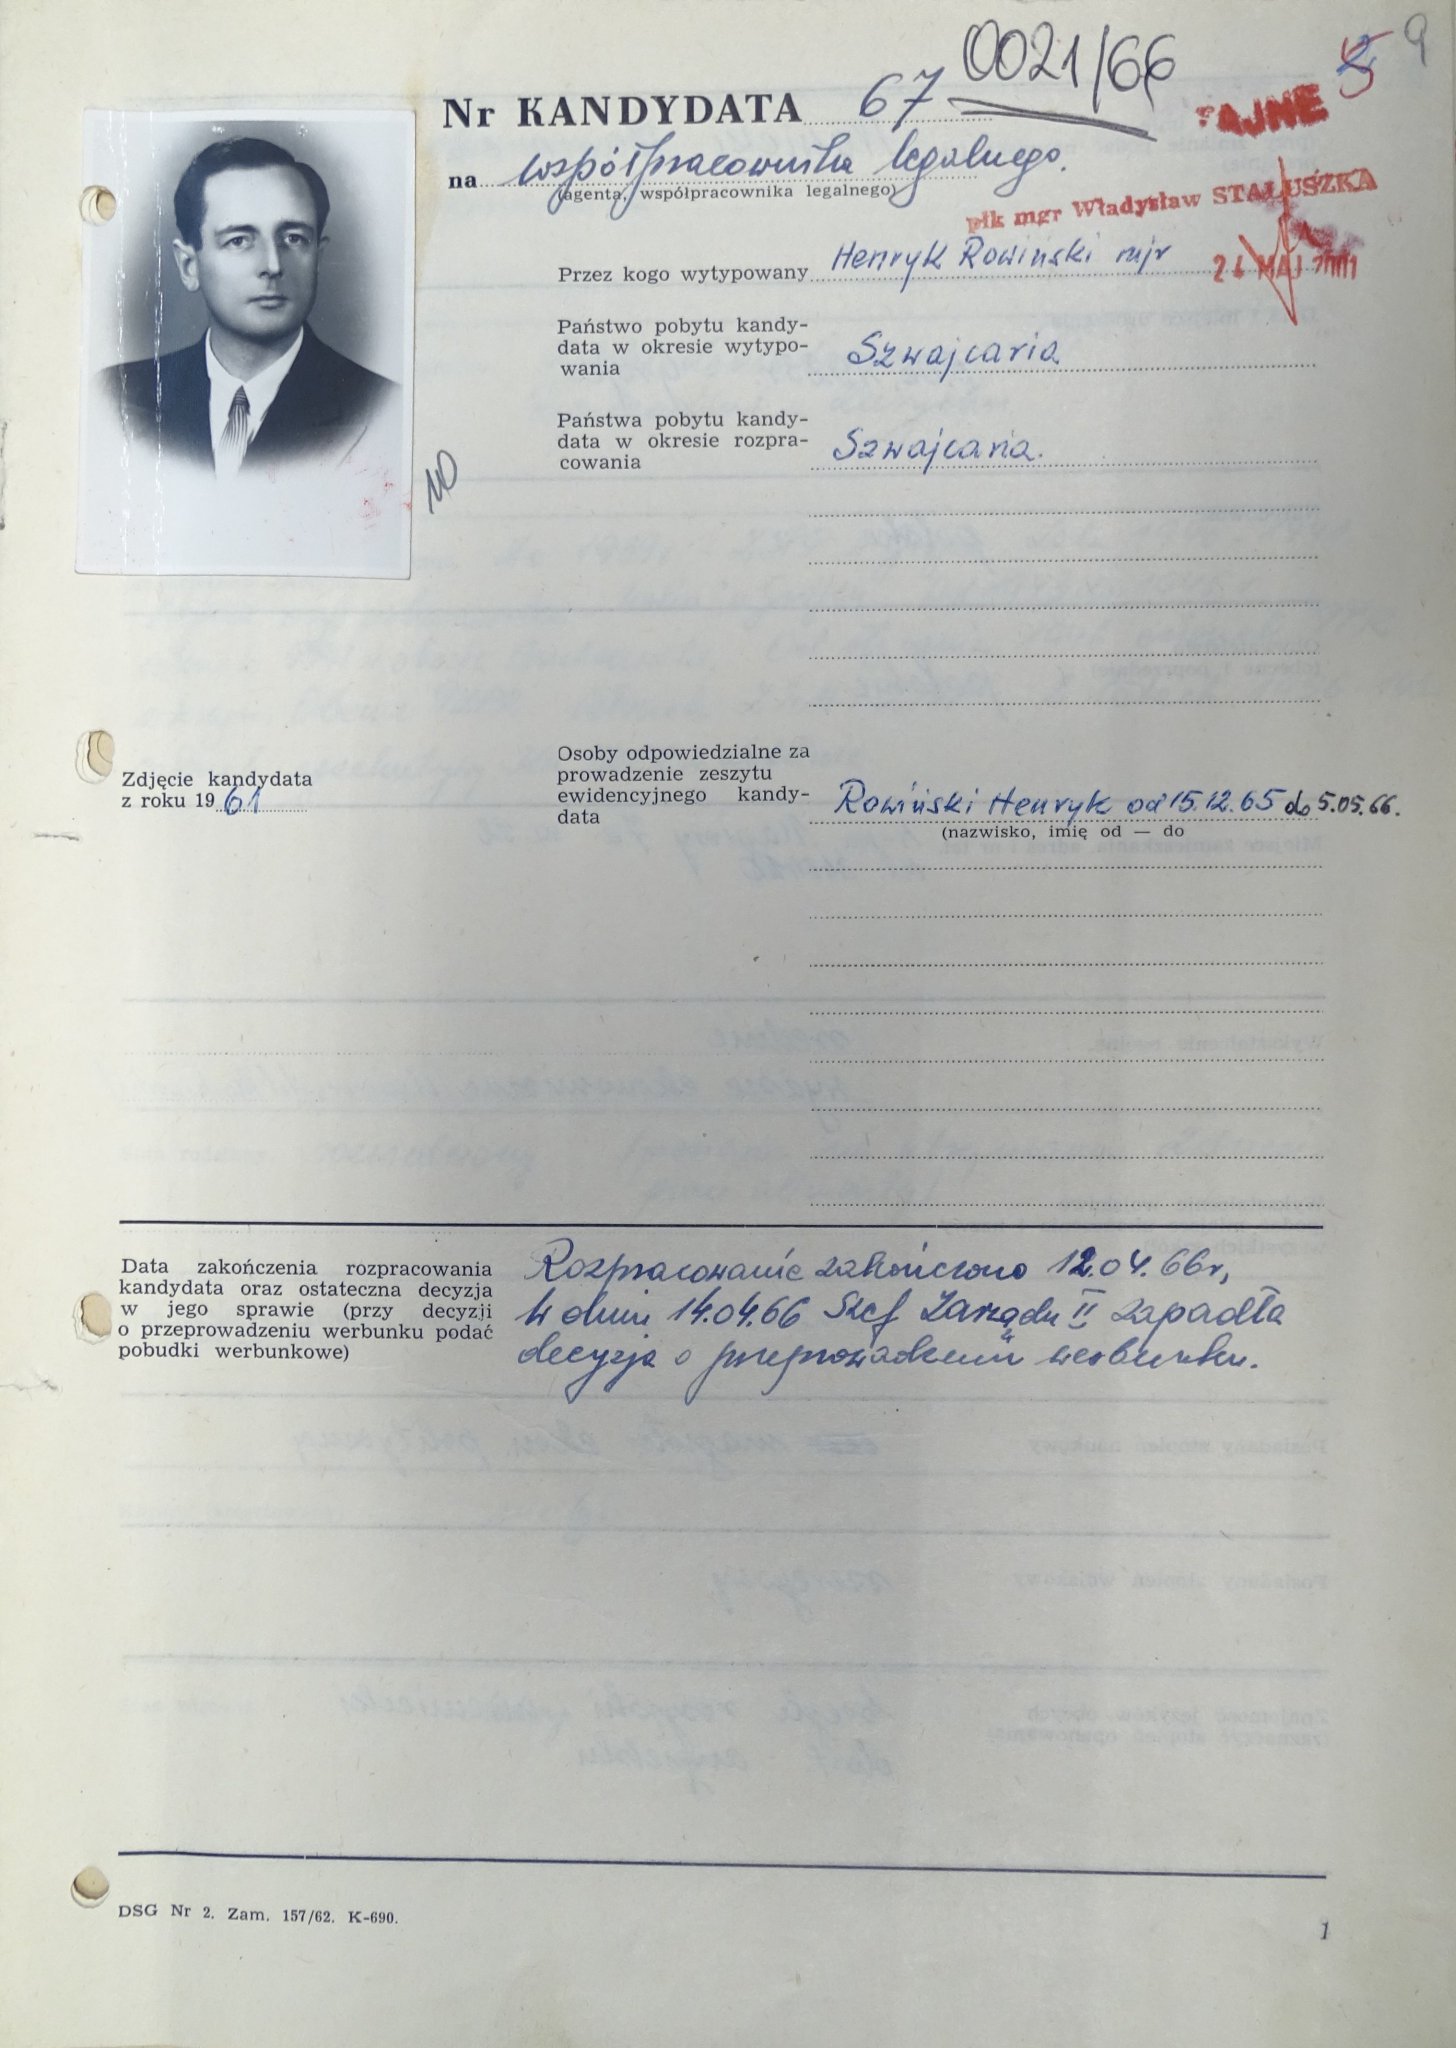 0021/66
9
Nr KANDYDATA 67
TAJNE
na współpracownika legalnego.
(agenta, współpracownika legalnego)
płk mgr Władysław STAŁUSZKA
Przez kogo wytypowany Henryk Rowiński mjr
MAJ
Państwo pobytu kandy-
data w okresie wytypo-
wania
Szwajcaria
Państwa pobytu kandy-
data w okresie rozpra-
cowania
Szwajcaria.
10
Zdjęcie kandydata
z roku 1961
Osoby odpowiedzialne za
prowadzenie zeszytu
ewidencyjnego kandy-
data
Rowiński Henryk od 15.12.65 do 5.05.66.
(nazwisko, imię od — do
Data zakończenia rozpracowania
kandydata oraz ostateczna decyzja
w jego sprawie (przy decyzji
o przeprowadzeniu werbunku podać
pobudki werbunkowe)
Rozpracowanie zakończono 12.04.66r,
W dniu 14.04.66 Szef Zarządu II zapadła
decyzja o przeprowadzeniu werbunku.
DSG Nr 2. Zam. 157/62. K-690.
1